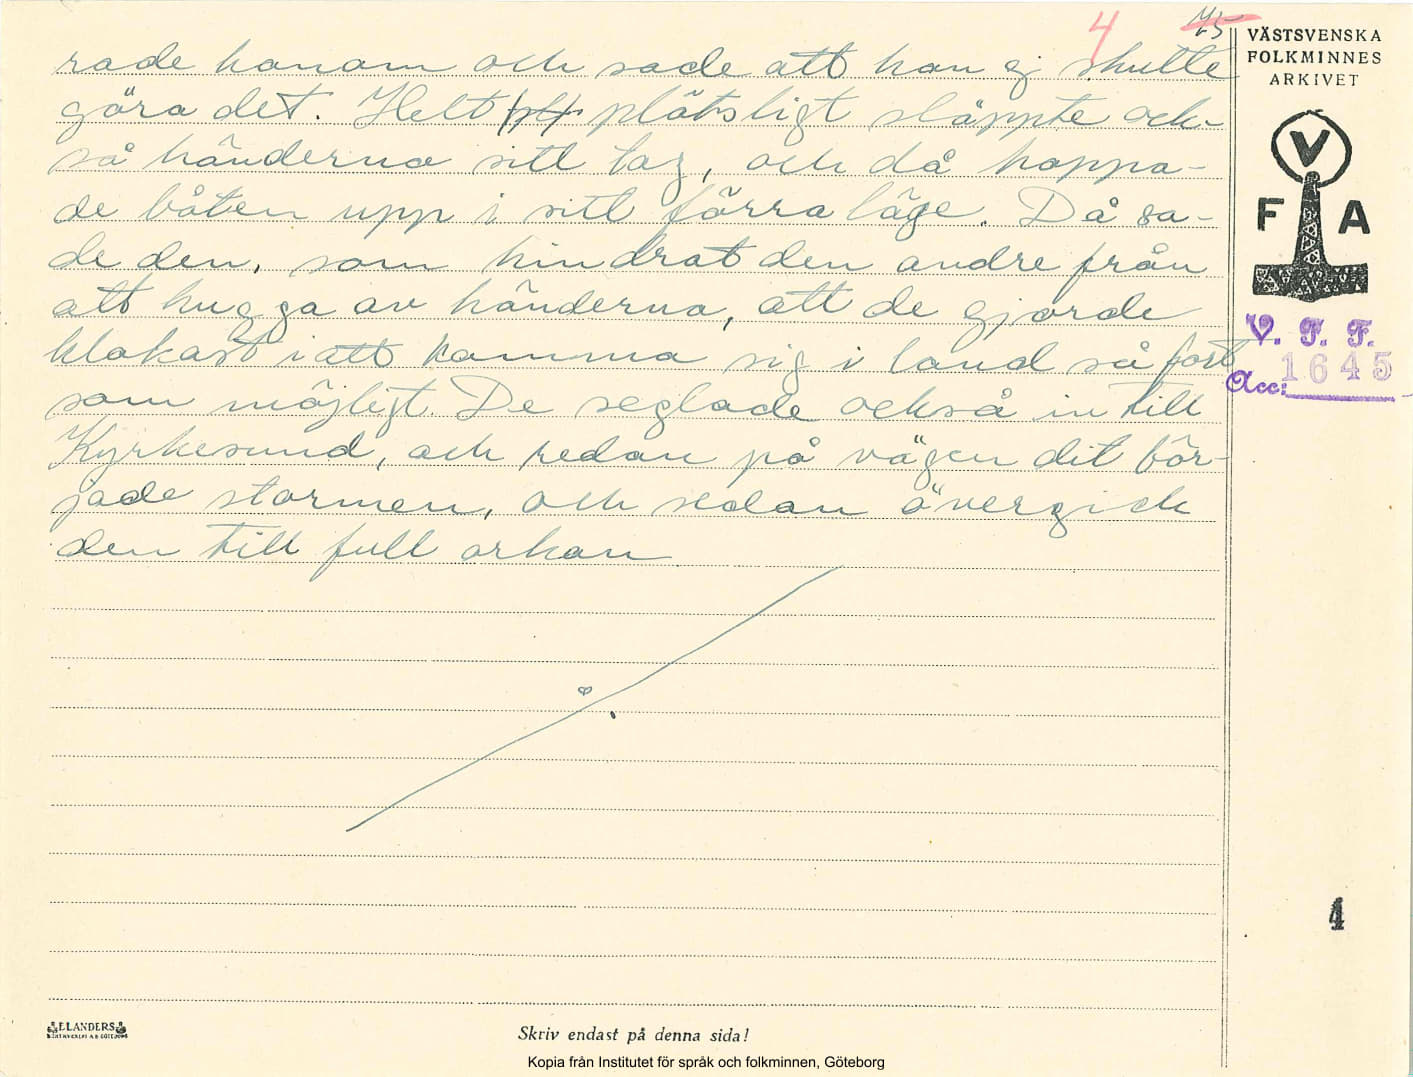 4 45
rade honom och sade att han ej skulle
göra det. Helt plötsligt släppte ock-
så händerna sitt tag, och då hoppa-
de båten upp i sitt förra läge. Då sa-
de den, som hindrat den andre från
att hugga av händerna, att de gjorde
klokast i att komma sig i land så fort
som möjligt. De seglade också in till
Kyrkesund, och redan på vägen dit bör-
jade stormen, och sedan övergick
den till full orkan
VÄSTSVENSKA
FOLKMINNES
ARKIVET
V
F A
V. F. F.
Acc: 1645
4
ELANDERS
Skriv endast på denna sida!
Kopia från Institutet för språk och folkminnen, Göteborg